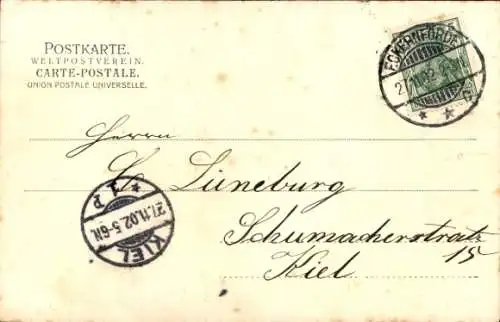 POSTKARTE.
WELTPOSTVEREIN.
CARTE-POSTALE.
UNION POSTALE UNIVERSELLE.
ECKERNFÖRDE
27.11.02
* * C
Herrn
Lüneburg
Schumacherstrate
15
Kiel
KIEL
27.11.02.5-6N.
* 1 P